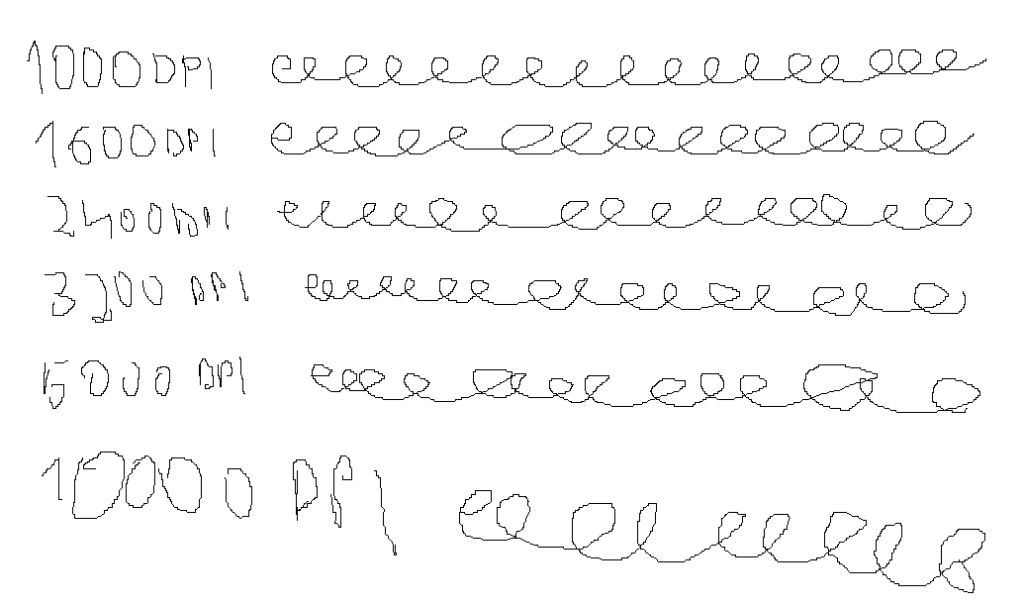 1000 DPI
1600 DPI
2400 DPI
3200 DPI
5000 DPI
10000 DPI